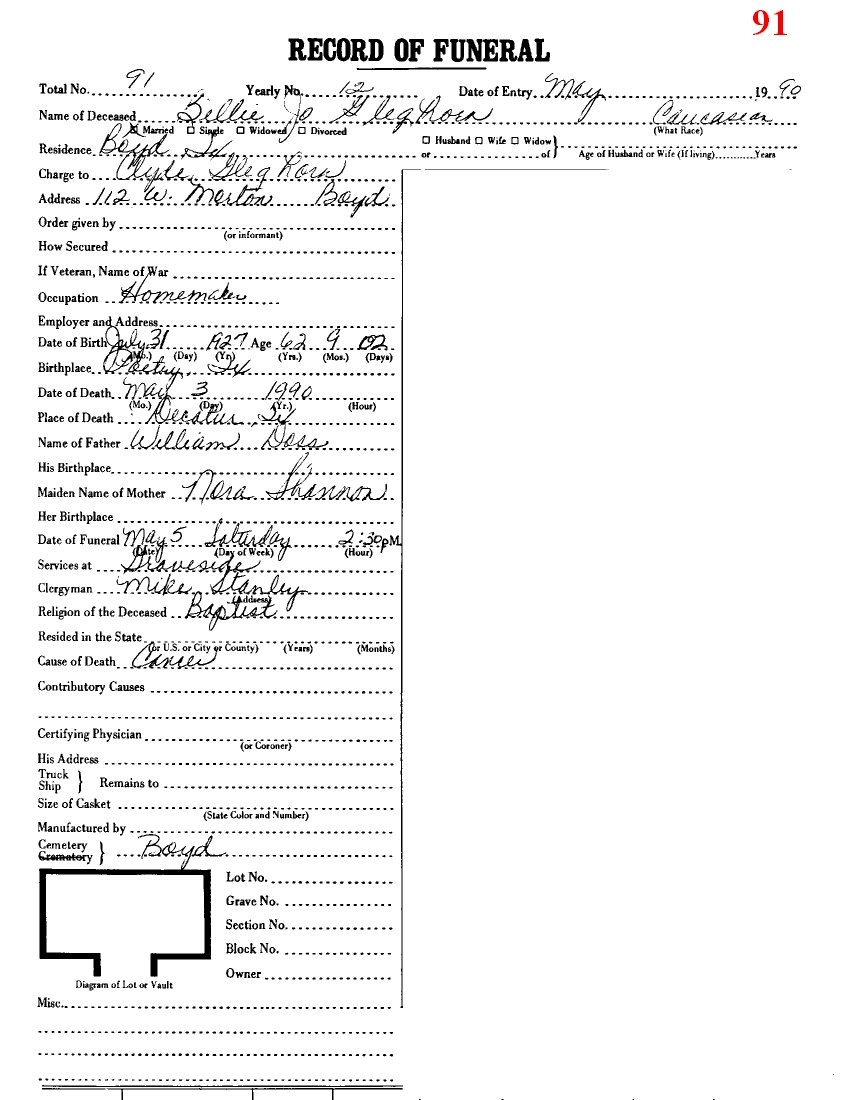 91
RECORD OF FUNERAL
Total No. 91 Yearly No. 12 Date of Entry May 1990
Name of Deceased Billie Jo Gleghorn Caucasian
☒ Married ☐ Single ☐ Widowed ☐ Divorced (What Race)
☐ Husband ☐ Wife ☐ Widow
Residence Boyd, Tx or of Age of Husband or Wife (If living) Years
Charge to Clyde Gleghorn
Address 112 W. Morton Boyd
Order given by
(or informant)
How Secured
If Veteran, Name of War
Occupation Homemaker
Employer and Address
Date of Birth July 31 1927 Age 62 9 02
(Mo.) (Day) (Yr.) (Yrs.) (Mos.) (Days)
Birthplace Poetry, Tx
Date of Death May 3 1990
(Mo.) (Day) (Yr.) (Hour)
Place of Death Decatur, Tx
Name of Father William Doss
His Birthplace
Maiden Name of Mother Nora Shannon
Her Birthplace
Date of Funeral May 5 Saturday 2:30 PM
(Date) (Day of Week) (Hour)
Services at Graveside
Clergyman Mike Stanley
(Address)
Religion of the Deceased Baptist
Resided in the State
(or U.S. or City or County) (Years) (Months)
Cause of Death Cancer
Contributory Causes
Certifying Physician
(or Coroner)
His Address
Truck
Ship } Remains to
Size of Casket
(State Color and Number)
Manufactured by
Cemetery
Crematory } Boyd
Lot No.
Grave No.
Section No.
Block No.
Owner
Diagram of Lot or Vault
Misc.